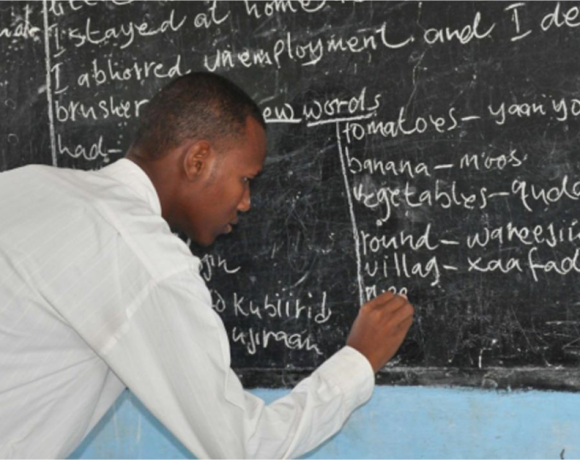 I stayed at home
I abhorred unemployment and I de
brusher
new words
had-
tomatoes- yaanyo
banana-moos.
vegetables-quda
round-wareejii
villag-xaafad
kubiirid
ujiraan